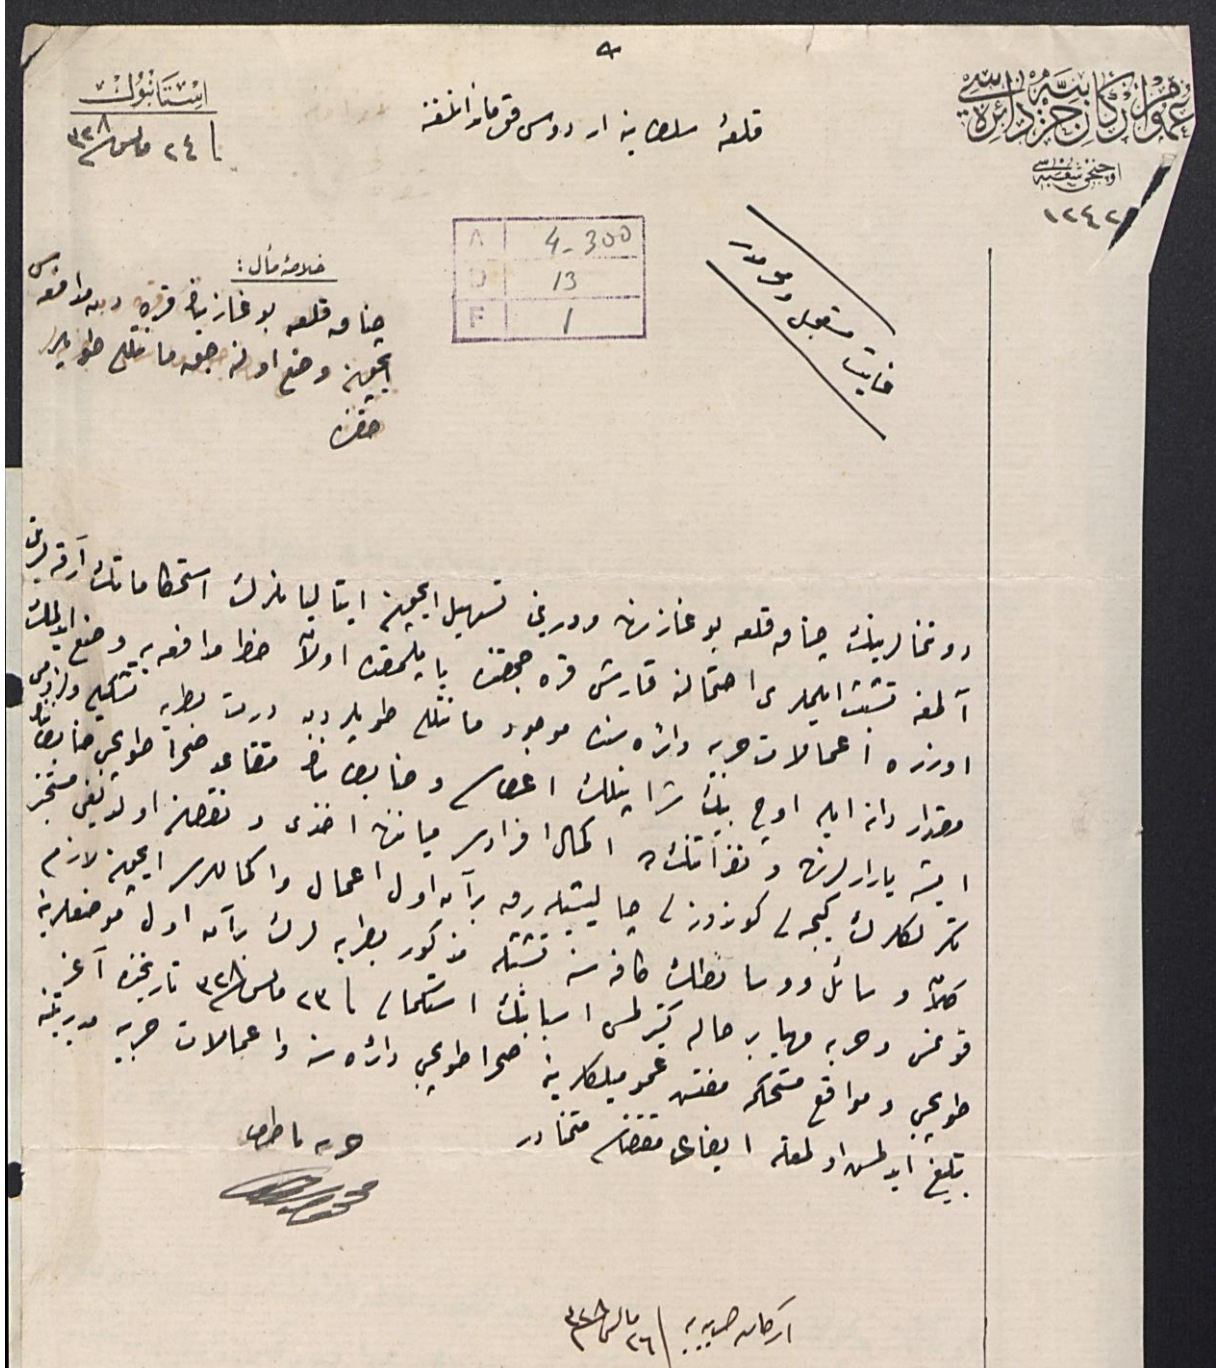 عموم اركان حربيه دائره سی
اوچنجی شعبه سی
١٢٤٢
استانبول
٢٤ مارس ٣٢٨
قلعهٔ سلطانيه اردوسی قوماندانلغنه
غايت مستعجل و محرمدر
A 4-300
D 13
F 1
خلاصهٔ مآل :
چناق قلعه بوغازينك قره دن مدافعه سی
ايچون وضع اولنه جق مانتللی طوپلر
حقنده
دونانمالرينك چناق قلعه بوغازندن مرورينی تسهيل ايچون ايتاليانلرك استحكاماتك آرقه لرينی
آلمغه تشبث ايتملری احتمالنه قارشی قره جهتنده ياپيلمقده اولان خط مدافعه يه وضع ايدلمك
اوزره اعمالات حربيه دائره سنده موجود مانتللی طوپلردن درت بطريه تشكيلی
مقدار دانه ايله اوچ بيك شراپنلك اعطاسی و ضابطاننك متقاعد صحرا طوپجی ضابطان
ايشه يارارلرندن و نفراتنك اكمال افرادی مياننده اخذی و نقصان اولديغی
كيجه لی كوندوزلی چاليشيله رق برآن اول اعمال و اكماللری ايچون لازم
وسائل و وسائطك كافه سنه تشبثله مذكور بطريه لرك برآن اول موضعلرينه
قونمش و حربه مهيا بر حاله كتيرلمسی اسبابنك استكمالی ٢٣ مارس ٣٢٨ تاريخنده آغر
طوپجی و مواقع مستحكمه مفتش عموميلكلرينه صحرا طوپجی دائره سنه و اعمالات حربيه مديريتنه
تبليغ ايدلمش اولمغله ايفای مقتضاسی متمنادر
حربيه ناظری
محمود شوكت
اركان حربيه يه
٢٦ مارس ٣٢٨